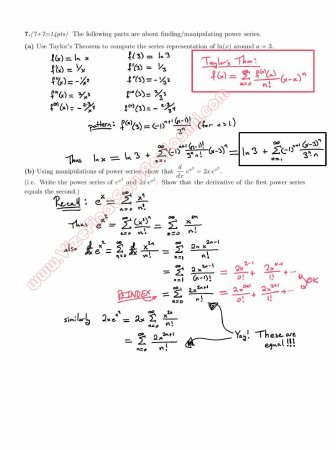 7. /7+7=14pts/ The following parts are about finding/manipulating power series.
(a) Use Taylor's Theorem to compute the series representation of ln(x) around a = 3.
f(x) = ln x f(3) = ln 3
f'(x) = 1/x f'(3) = 1/3
f''(x) = -1/x² f''(3) = -1/3²
f'''(x) = 2/x³ f'''(3) = 2/3³
Taylor's Thm:
f(x) = ∞ Σ n=0 f⁽ⁿ⁾(a)/n! (x-a)ⁿ
pattern: f⁽ⁿ⁾(3) = (-1)ⁿ⁺¹ (n-1)!/3ⁿ (for n≥1)
Thus ln x = ln 3 + ∞ Σ n=1 (-1)ⁿ⁺¹ (n-1)!/3ⁿ n! (x-3)ⁿ = ln 3 + ∞ Σ n=1 (-1)ⁿ⁺¹ (x-3)ⁿ/3ⁿ n
(b) Using manipulations of power series, show that d/dx e^x² = 2x e^x².
(i.e. Write the power series of e^x² and 2x e^x². Show that the derivative of the first power series
equals the second.)
Recall: e^x = ∞ Σ n=0 xⁿ/n!
Thus e^x² = ∞ Σ n=0 (x²)ⁿ/n! = ∞ Σ n=0 x²ⁿ/n!
also d/dx e^x² = ∞ Σ n=0 d/dx x²ⁿ/n! = ∞ Σ n=1 2n x²ⁿ⁻¹/n!
= ∞ Σ n=1 2x²ⁿ⁻¹/(n-1)!
REINDEX = ∞ Σ n=0 2x²ⁿ⁺¹/n!
OK
similarly 2xe^x² = 2x ∞ Σ n=0 x²ⁿ/n!
= ∞ Σ n=0 2x²ⁿ⁺¹/n!
Yay! These are
equal!!!